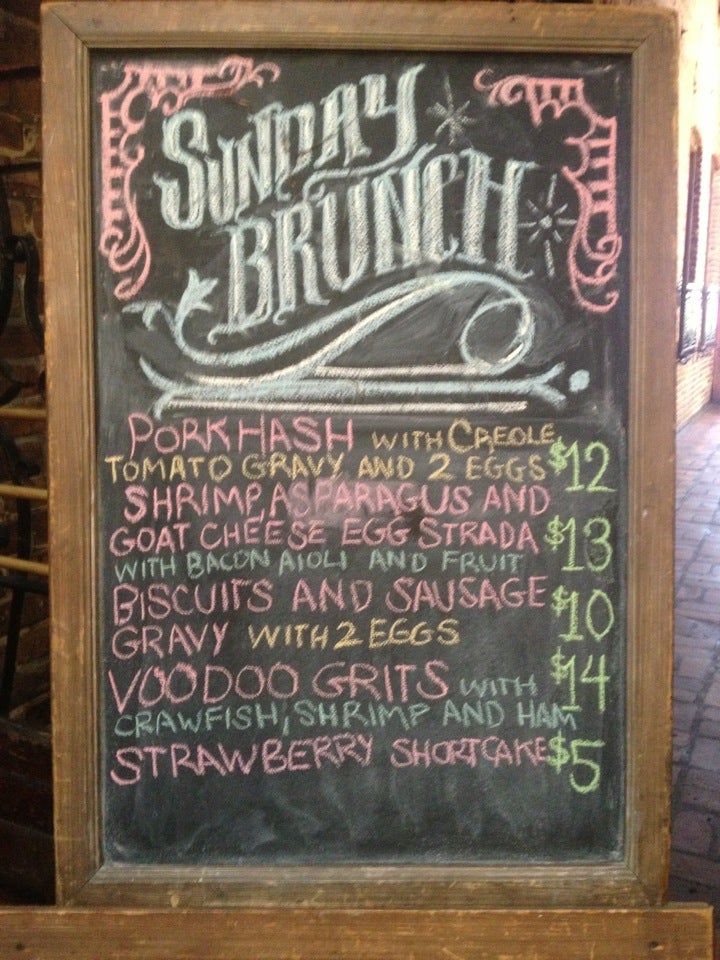 SUNDAY
BRUNCH
PORK HASH WITH CREOLE
TOMATO GRAVY AND 2 EGGS $12
SHRIMP, ASPARAGUS AND
GOAT CHEESE EGG STRADA $13
WITH BACON AIOLI AND FRUIT
BISCUITS AND SAUSAGE $10
GRAVY WITH 2 EGGS
VOODOO GRITS WITH $14
CRAWFISH, SHRIMP AND HAM
STRAWBERRY SHORTCAKE $5